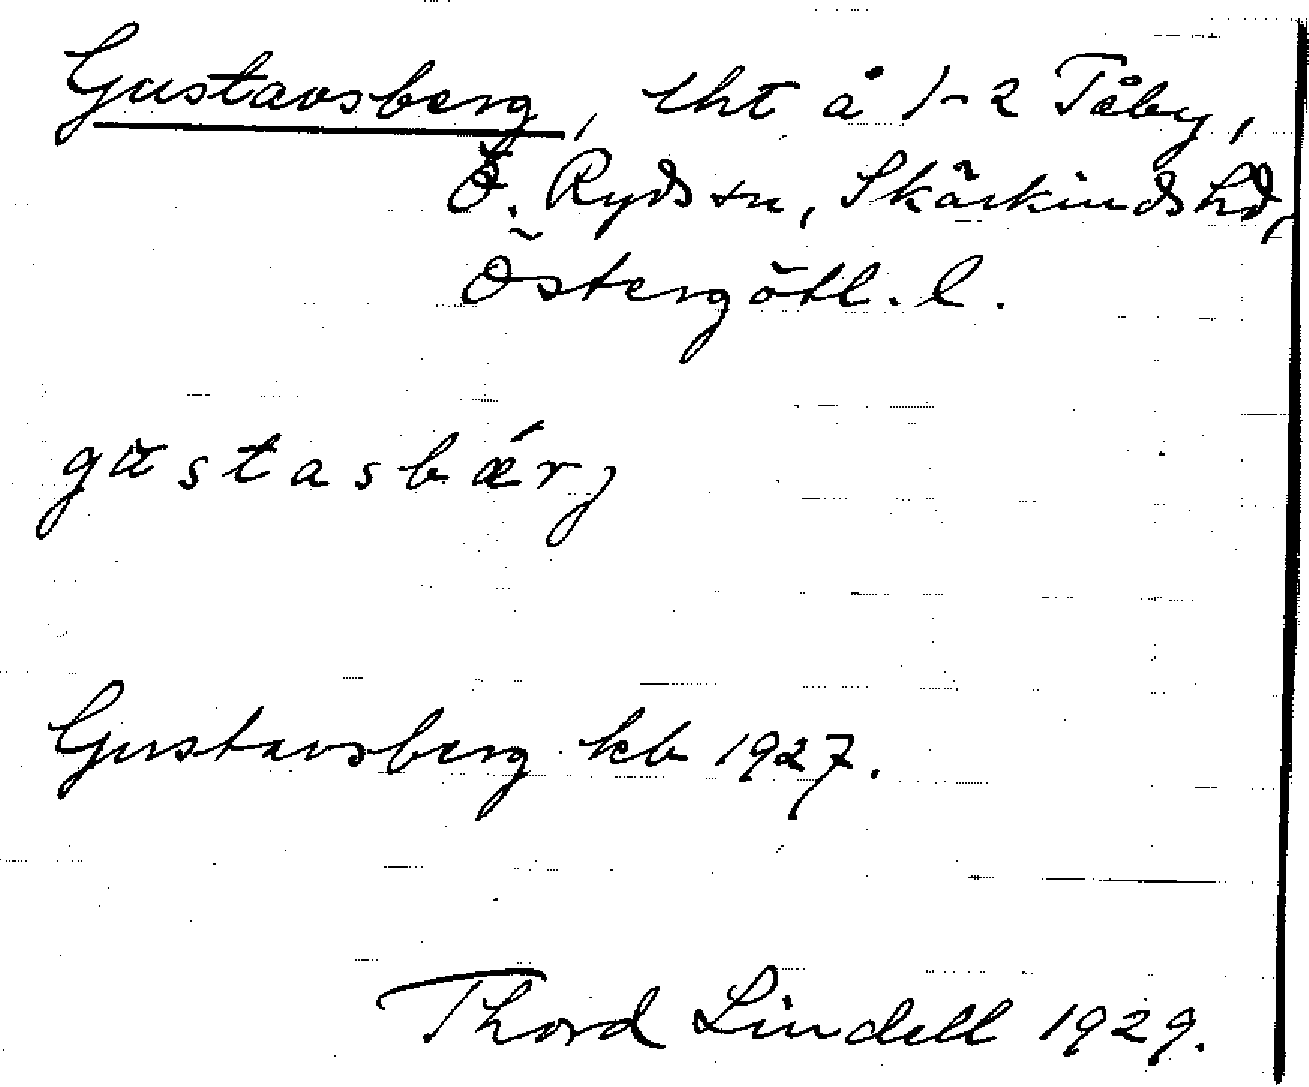 Gustavsberg, lht å 1-2 Tåby,
Ö. Ryds sn, Skärkinds hd,
Östergötl. l.
gustasbǽrj
Gustavsberg kb 1927.
Thord Lindell 1929.